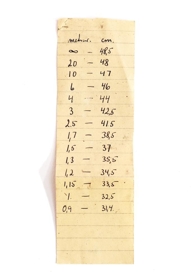 metrów. cm.
∞ — 48,5
20 — 48
10 — 47
6 — 46
4 — 44
3 — 42,5
2,5 — 41,5
1,7 — 38,5
1,5 — 37
1,3 — 35,5
1,2 — 34,5
1,15 — 33,5
1 — 32,5
0,9 — 31,4